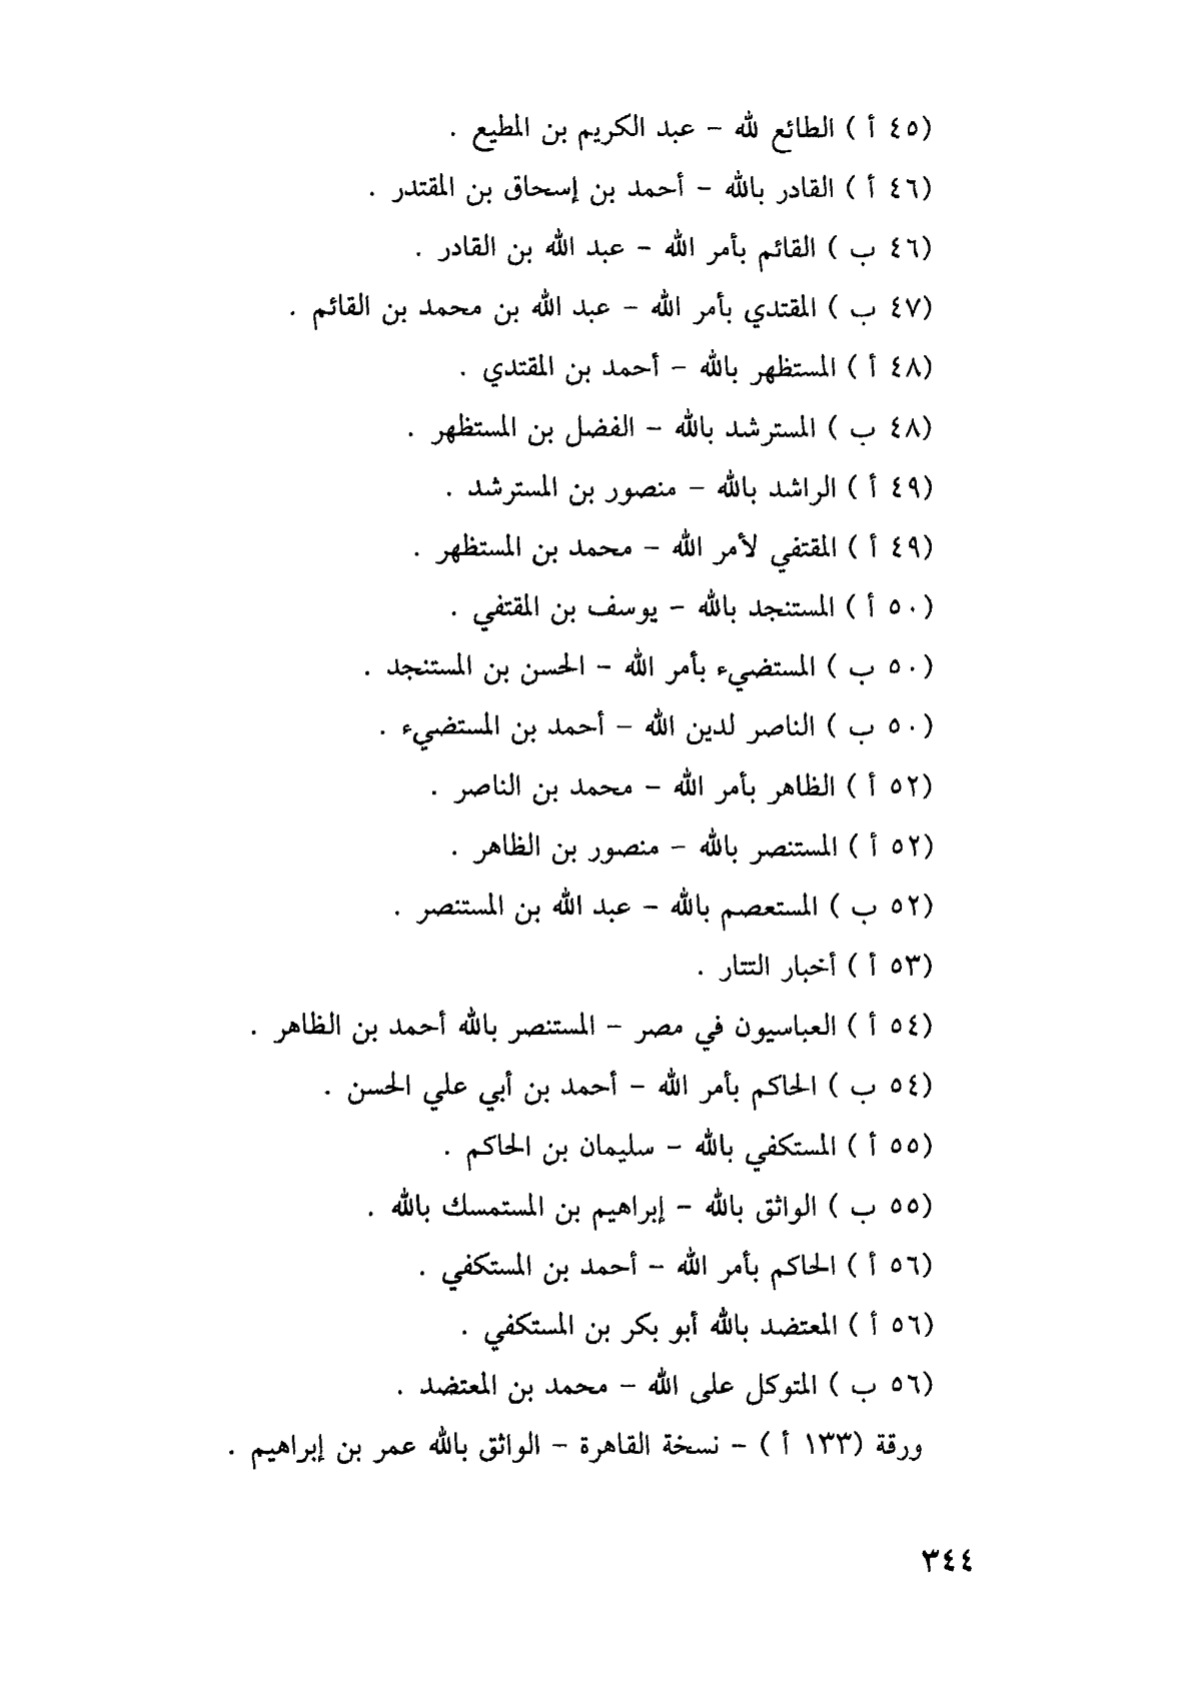 (٤٥ أ ) الطائع لله – عبد الكريم بن المطيع .
(٤٦ أ ) القادر بالله – أحمد بن إسحاق بن المقتدر .
(٤٦ ب ) القائم بأمر الله – عبد الله بن القادر .
(٤٧ ب ) المقتدي بأمر الله – عبد الله بن محمد بن القائم .
(٤٨ أ ) المستظهر بالله – أحمد بن المقتدي .
(٤٨ ب ) المسترشد بالله – الفضل بن المستظهر .
(٤٩ أ ) الراشد بالله – منصور بن المسترشد .
(٤٩ أ ) المقتفي لأمر الله – محمد بن المستظهر .
(٥٠ أ ) المستنجد بالله – يوسف بن المقتفي .
(٥٠ ب ) المستضيء بأمر الله – الحسن بن المستنجد .
(٥٠ ب ) الناصر لدين الله – أحمد بن المستضيء .
(٥٢ أ ) الظاهر بأمر الله – محمد بن الناصر .
(٥٢ أ ) المستنصر بالله – منصور بن الظاهر .
(٥٢ ب ) المستعصم بالله – عبد الله بن المستنصر .
(٥٣ أ ) أخبار التتار .
(٥٤ أ ) العباسيون في مصر – المستنصر بالله أحمد بن الظاهر .
(٥٤ ب ) الحاكم بأمر الله – أحمد بن أبي علي الحسن .
(٥٥ أ ) المستكفي بالله – سليمان بن الحاكم .
(٥٥ ب ) الواثق بالله – إبراهيم بن المستمسك بالله .
(٥٦ أ ) الحاكم بأمر الله – أحمد بن المستكفي .
(٥٦ أ ) المعتضد بالله أبو بكر بن المستكفي .
(٥٦ ب ) المتوكل على الله – محمد بن المعتضد .
ورقة (١٣٣ أ ) – نسخة القاهرة – الواثق بالله عمر بن إبراهيم .
٣٤٤